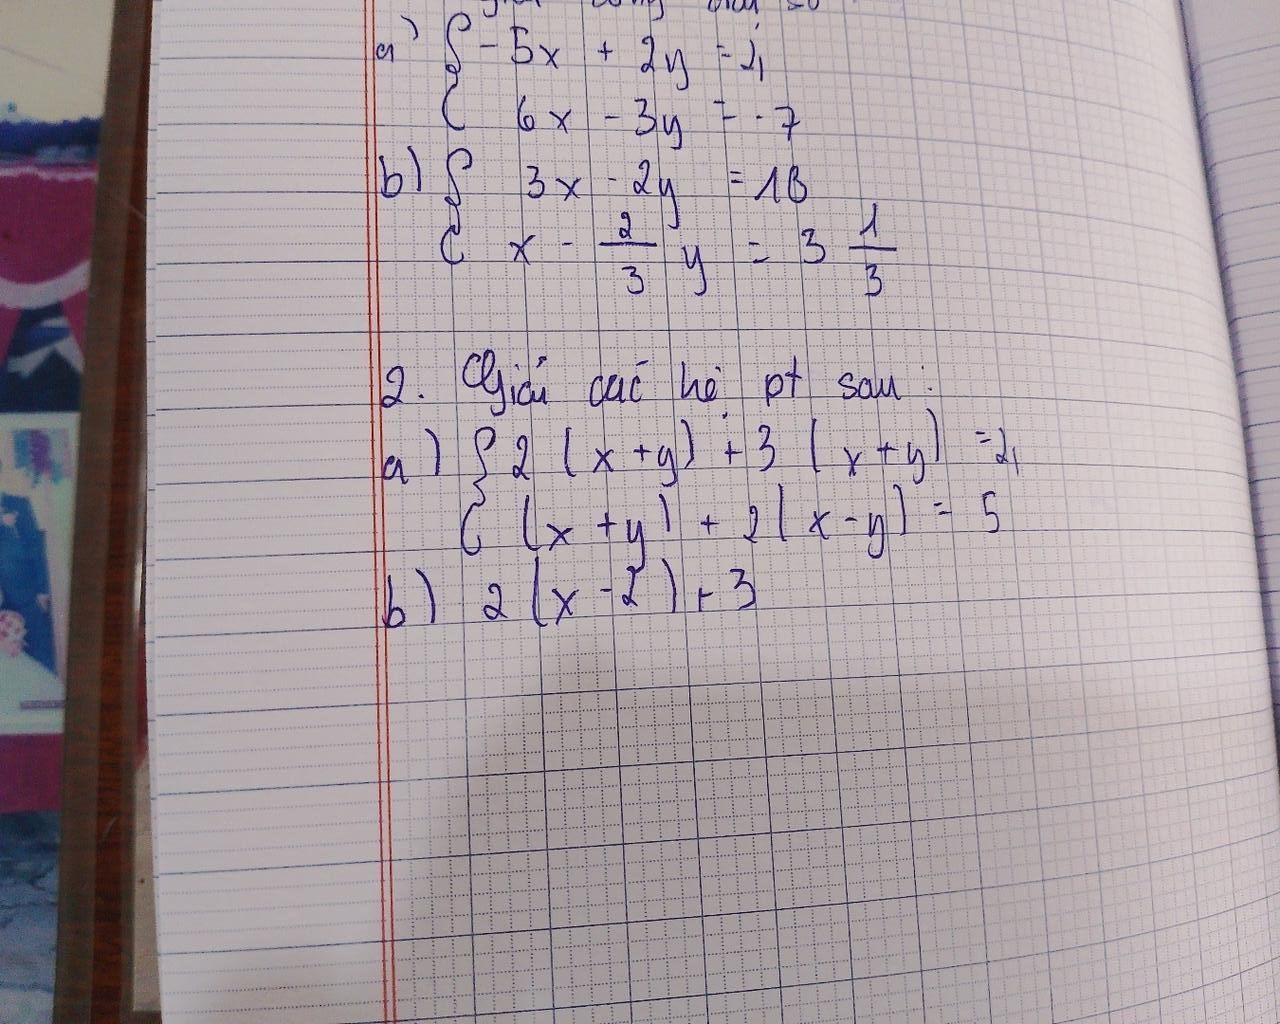 a) { -5x + 2y = 4
6x - 3y = -7
b) { 3x - 2y = 10
x - 2/3 y = 3 1/3
2. Giải các hệ pt sau :
a) { 2 (x+y) + 3 (x+y) = 4
(x+y) + 2(x-y) = 5
b) 2(x-2) + 3